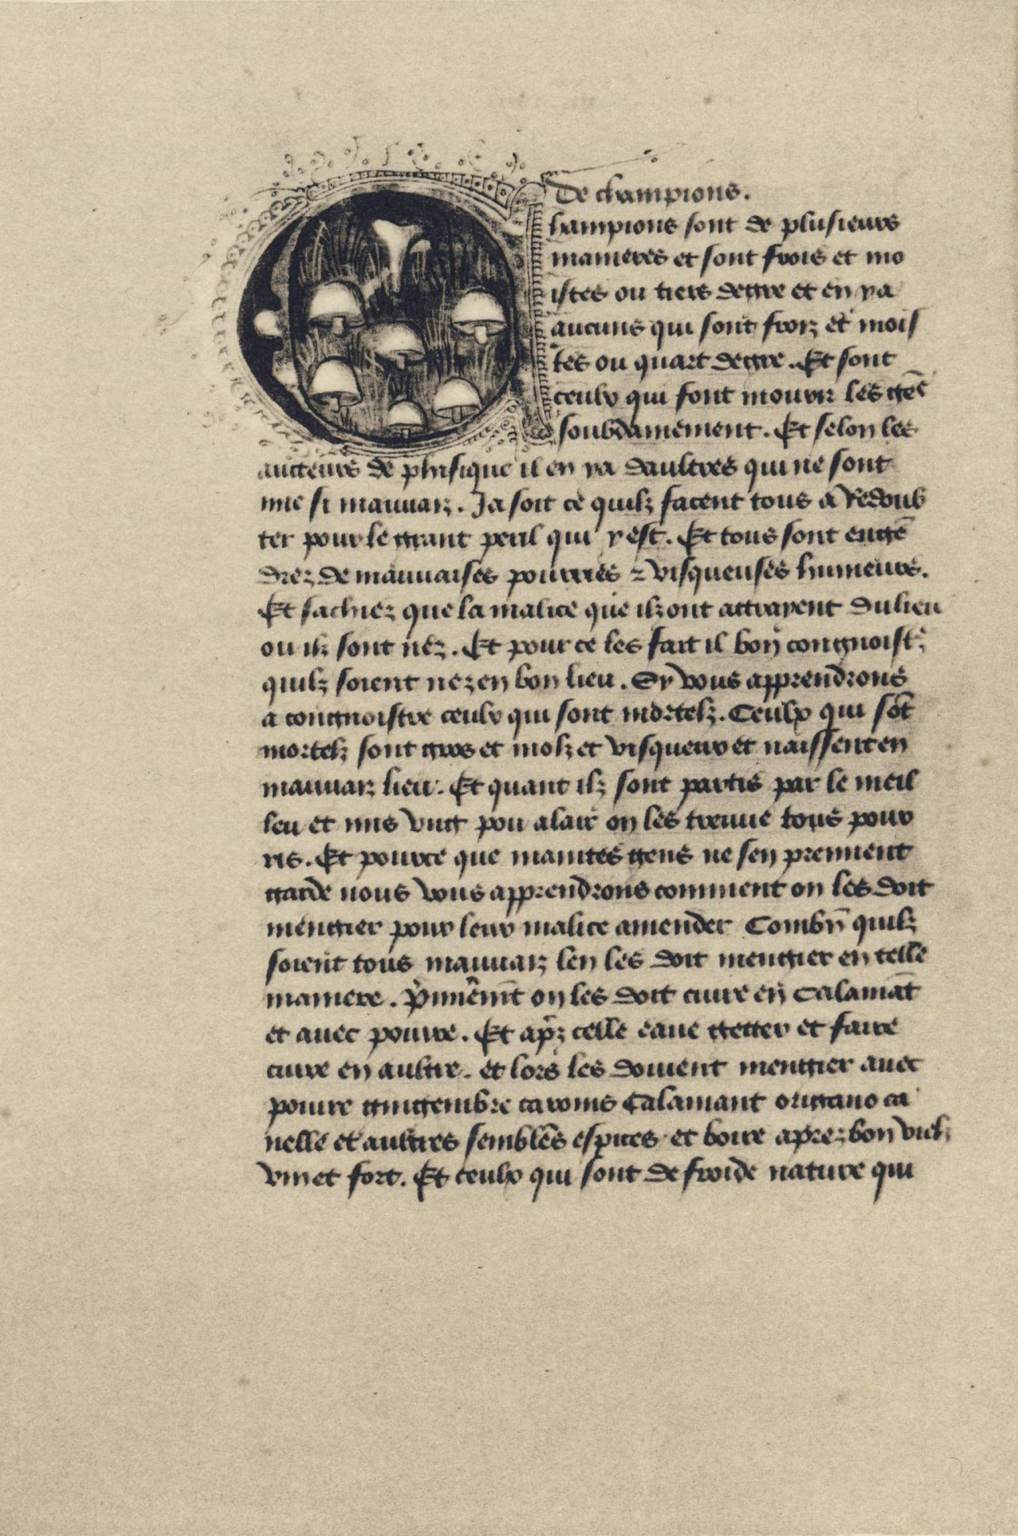 De champions.
Champions sont de plusieurs
manieres et sont frois et mo
istes ou tiers degre et en ya
aucuns qui sont froiz et mois
tes ou quart degre. Et sont
ceulx qui font mourir les gēs
soubdainement. Et selon les
aucteurs de phisique il en ya daultres qui ne sont
mie si mauuaiz. Ja soit ce quilz facent tous a Redoub
ter pour le grant peril qui y est. Et tous sont engē
drez de mauuaises pourries ⁊ visqueuses humeurs.
Et sachiez que la malice que ilz ont attrayent du lieu
ou ilz sont nez. Et pour ce les fait il bon congnoistr̄
quilz soient nez en bon lieu. Sy vous apprendrons
a congnoistre ceulx qui sont mortelz. Ceulx qui sōt
mortelz sont gros et molz et visqueux et naissent en
mauuaiz lieu. Et quant ilz sont partis par le meil
leu et mis vng pou alair on les treuue tous pour
ris. Et pource que maintes gens ne sen prennent
garde nous vous apprendrons comment on les doit
mengier pour leur malice amender Combn̄ quilz
soient tous mauuaiz len les doit mengier en telle
maniere. P̄mierem̄t on les doit cuire en Calamāt
et avec poivre. Et apr̄z celle eaue getter et faire
cuire en aultre. et lors les doivent mengier avec
poivre gingembre caroins Calamant origano ca
nelle et aultres sembles espices et boire aprez bon vielz
vin et fort. Et ceulx qui sont de froide nature qui